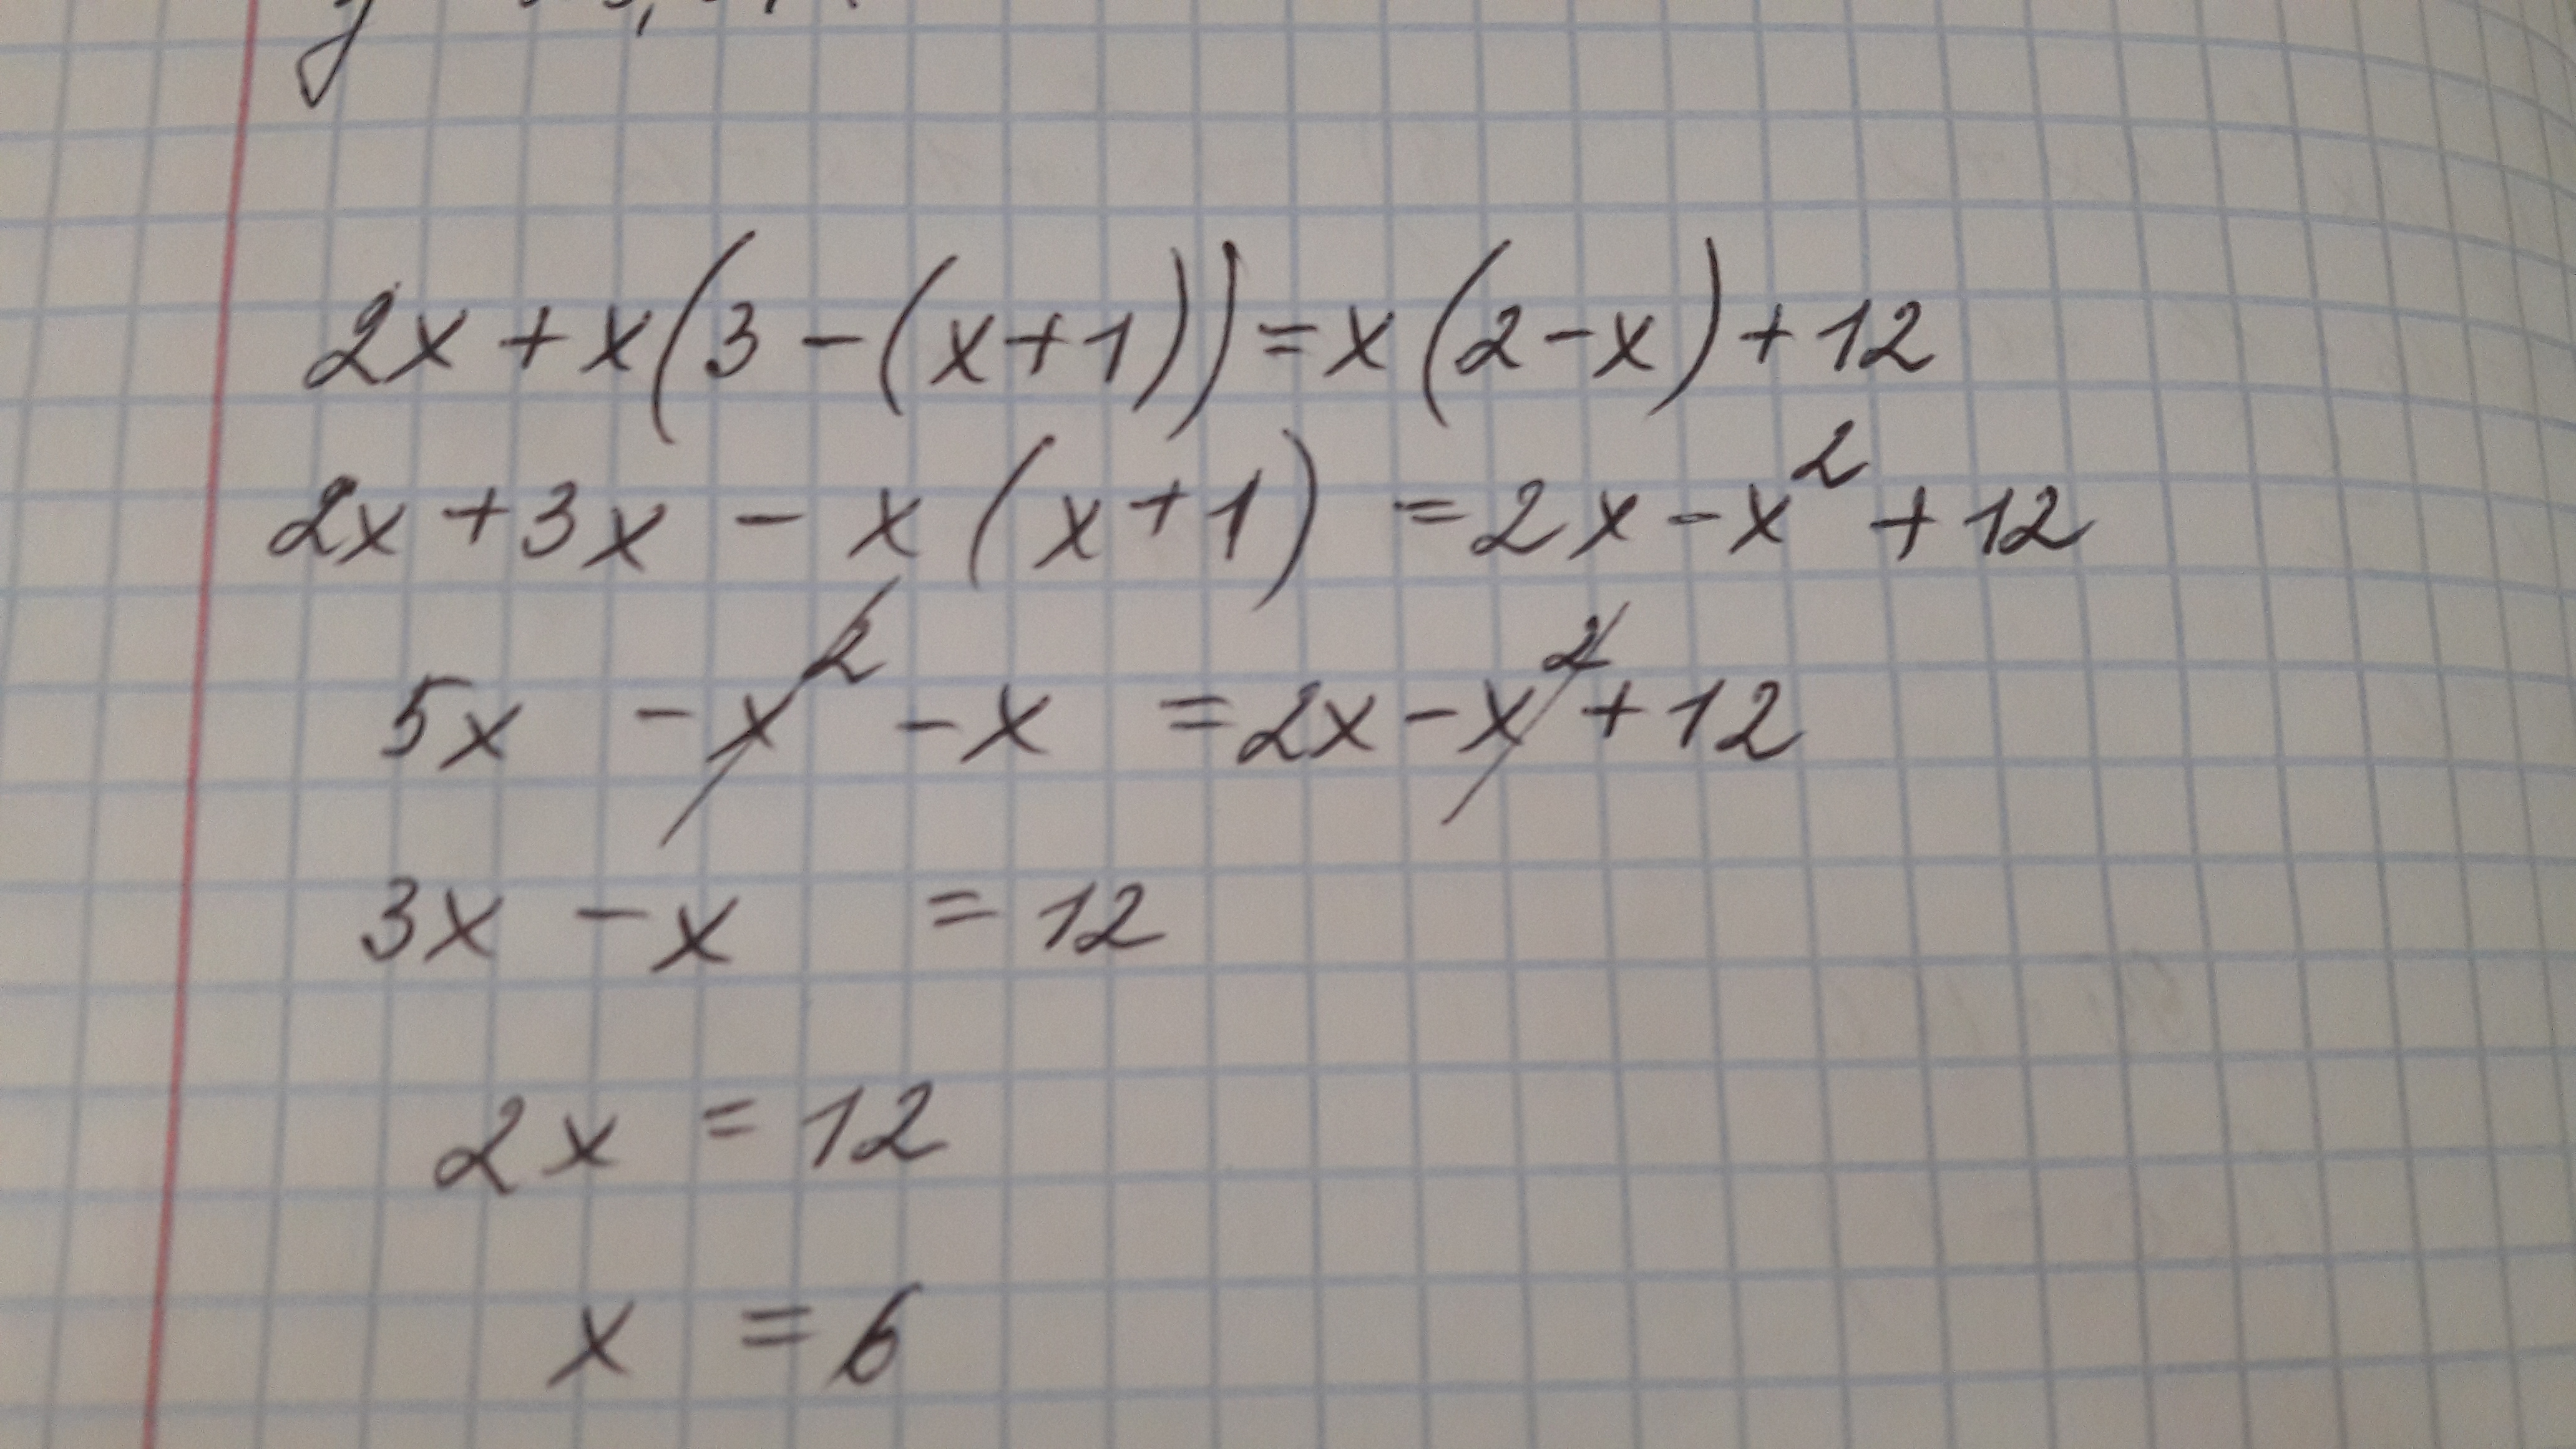 2x + x(3 - (x+1)) = x(2-x) + 12
2x + 3x - x(x+1) = 2x - x² + 12
5x - x² - x = 2x - x² + 12
3x - x = 12
2x = 12
x = 6